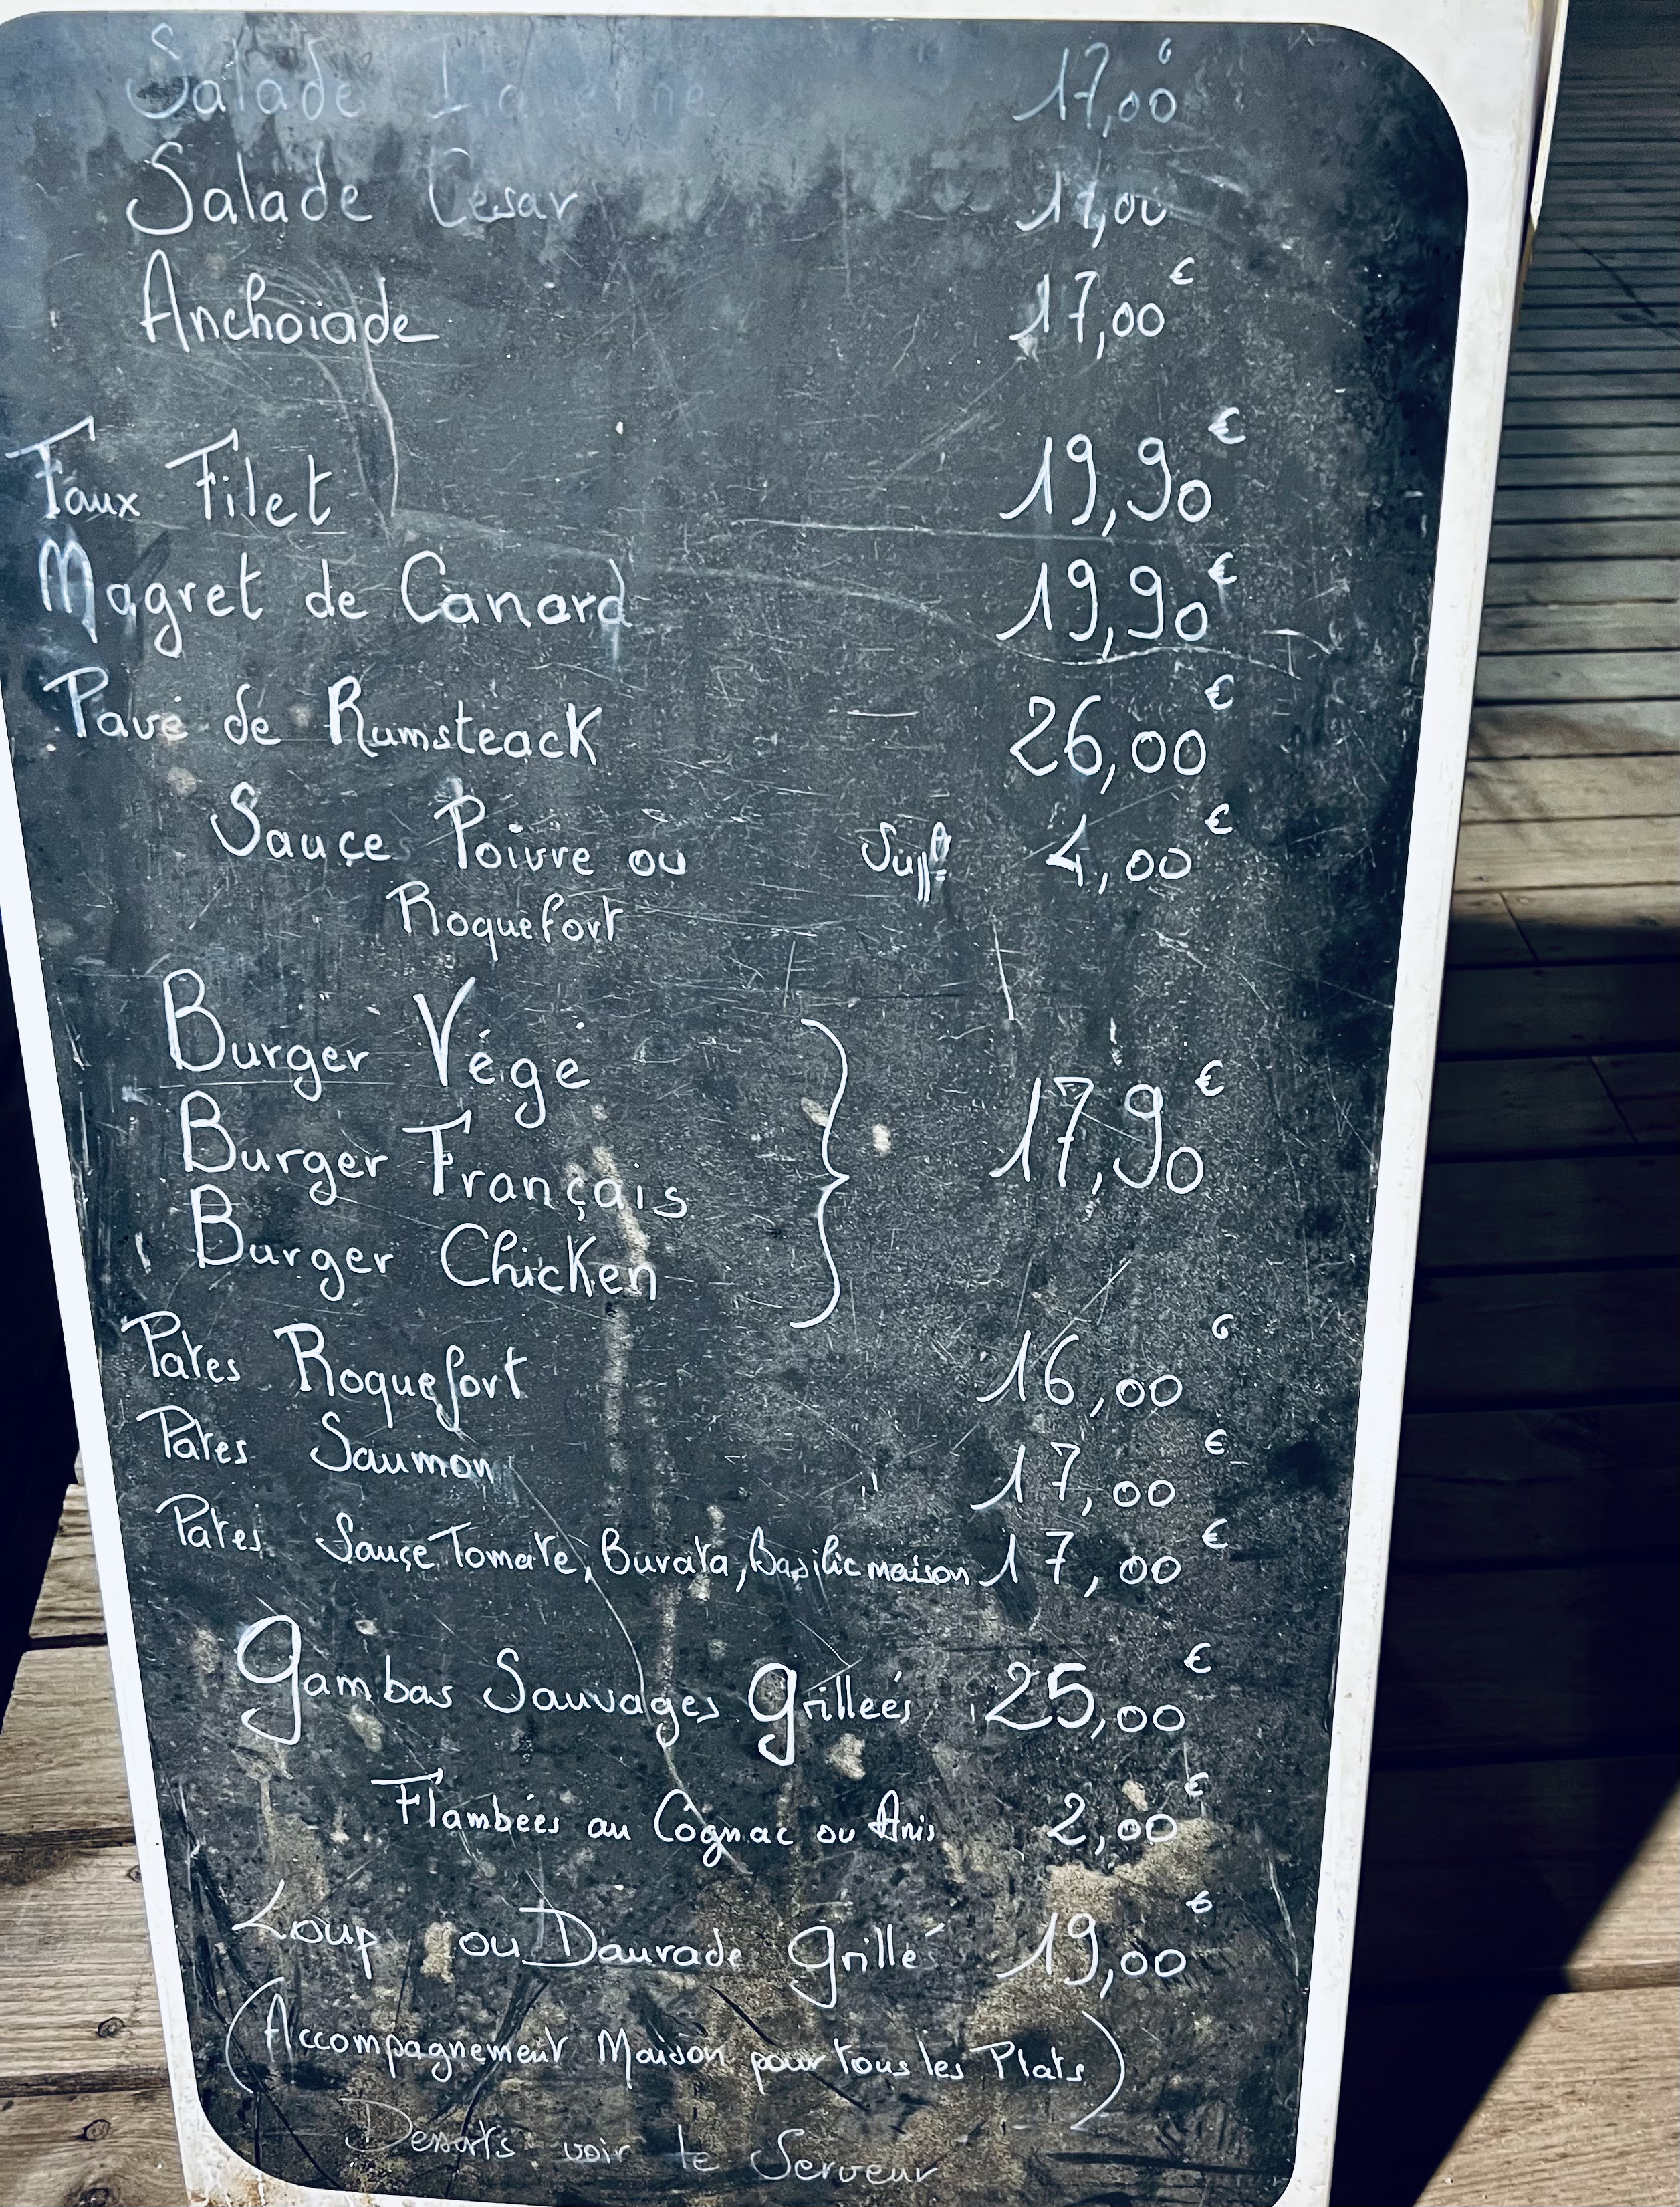 Salade Italienne 17,00€
Salade Cesar 17,00
Anchoïade 17,00€
Faux Filet 19,90€
Magret de Canard 19,90€
Pavé de Rumsteack 26,00€
Sauce Poivre ou Supp. 4,00€
Roquefort
Burger Végé
Burger Français 17,90€
Burger Chicken
Pates Roquefort 16,00€
Pates Saumon 17,00€
Pates Sauçe Tomate, Burata, Basilic maison 17,00€
Gambas Sauvages Grilleés 25,00€
Flambées au Cognac ou Anis 2,00€
Loup ou Daurade Grillé 19,00€
(Accompagnement Maison pour tous les Plats)
Desserts voir le Serveur